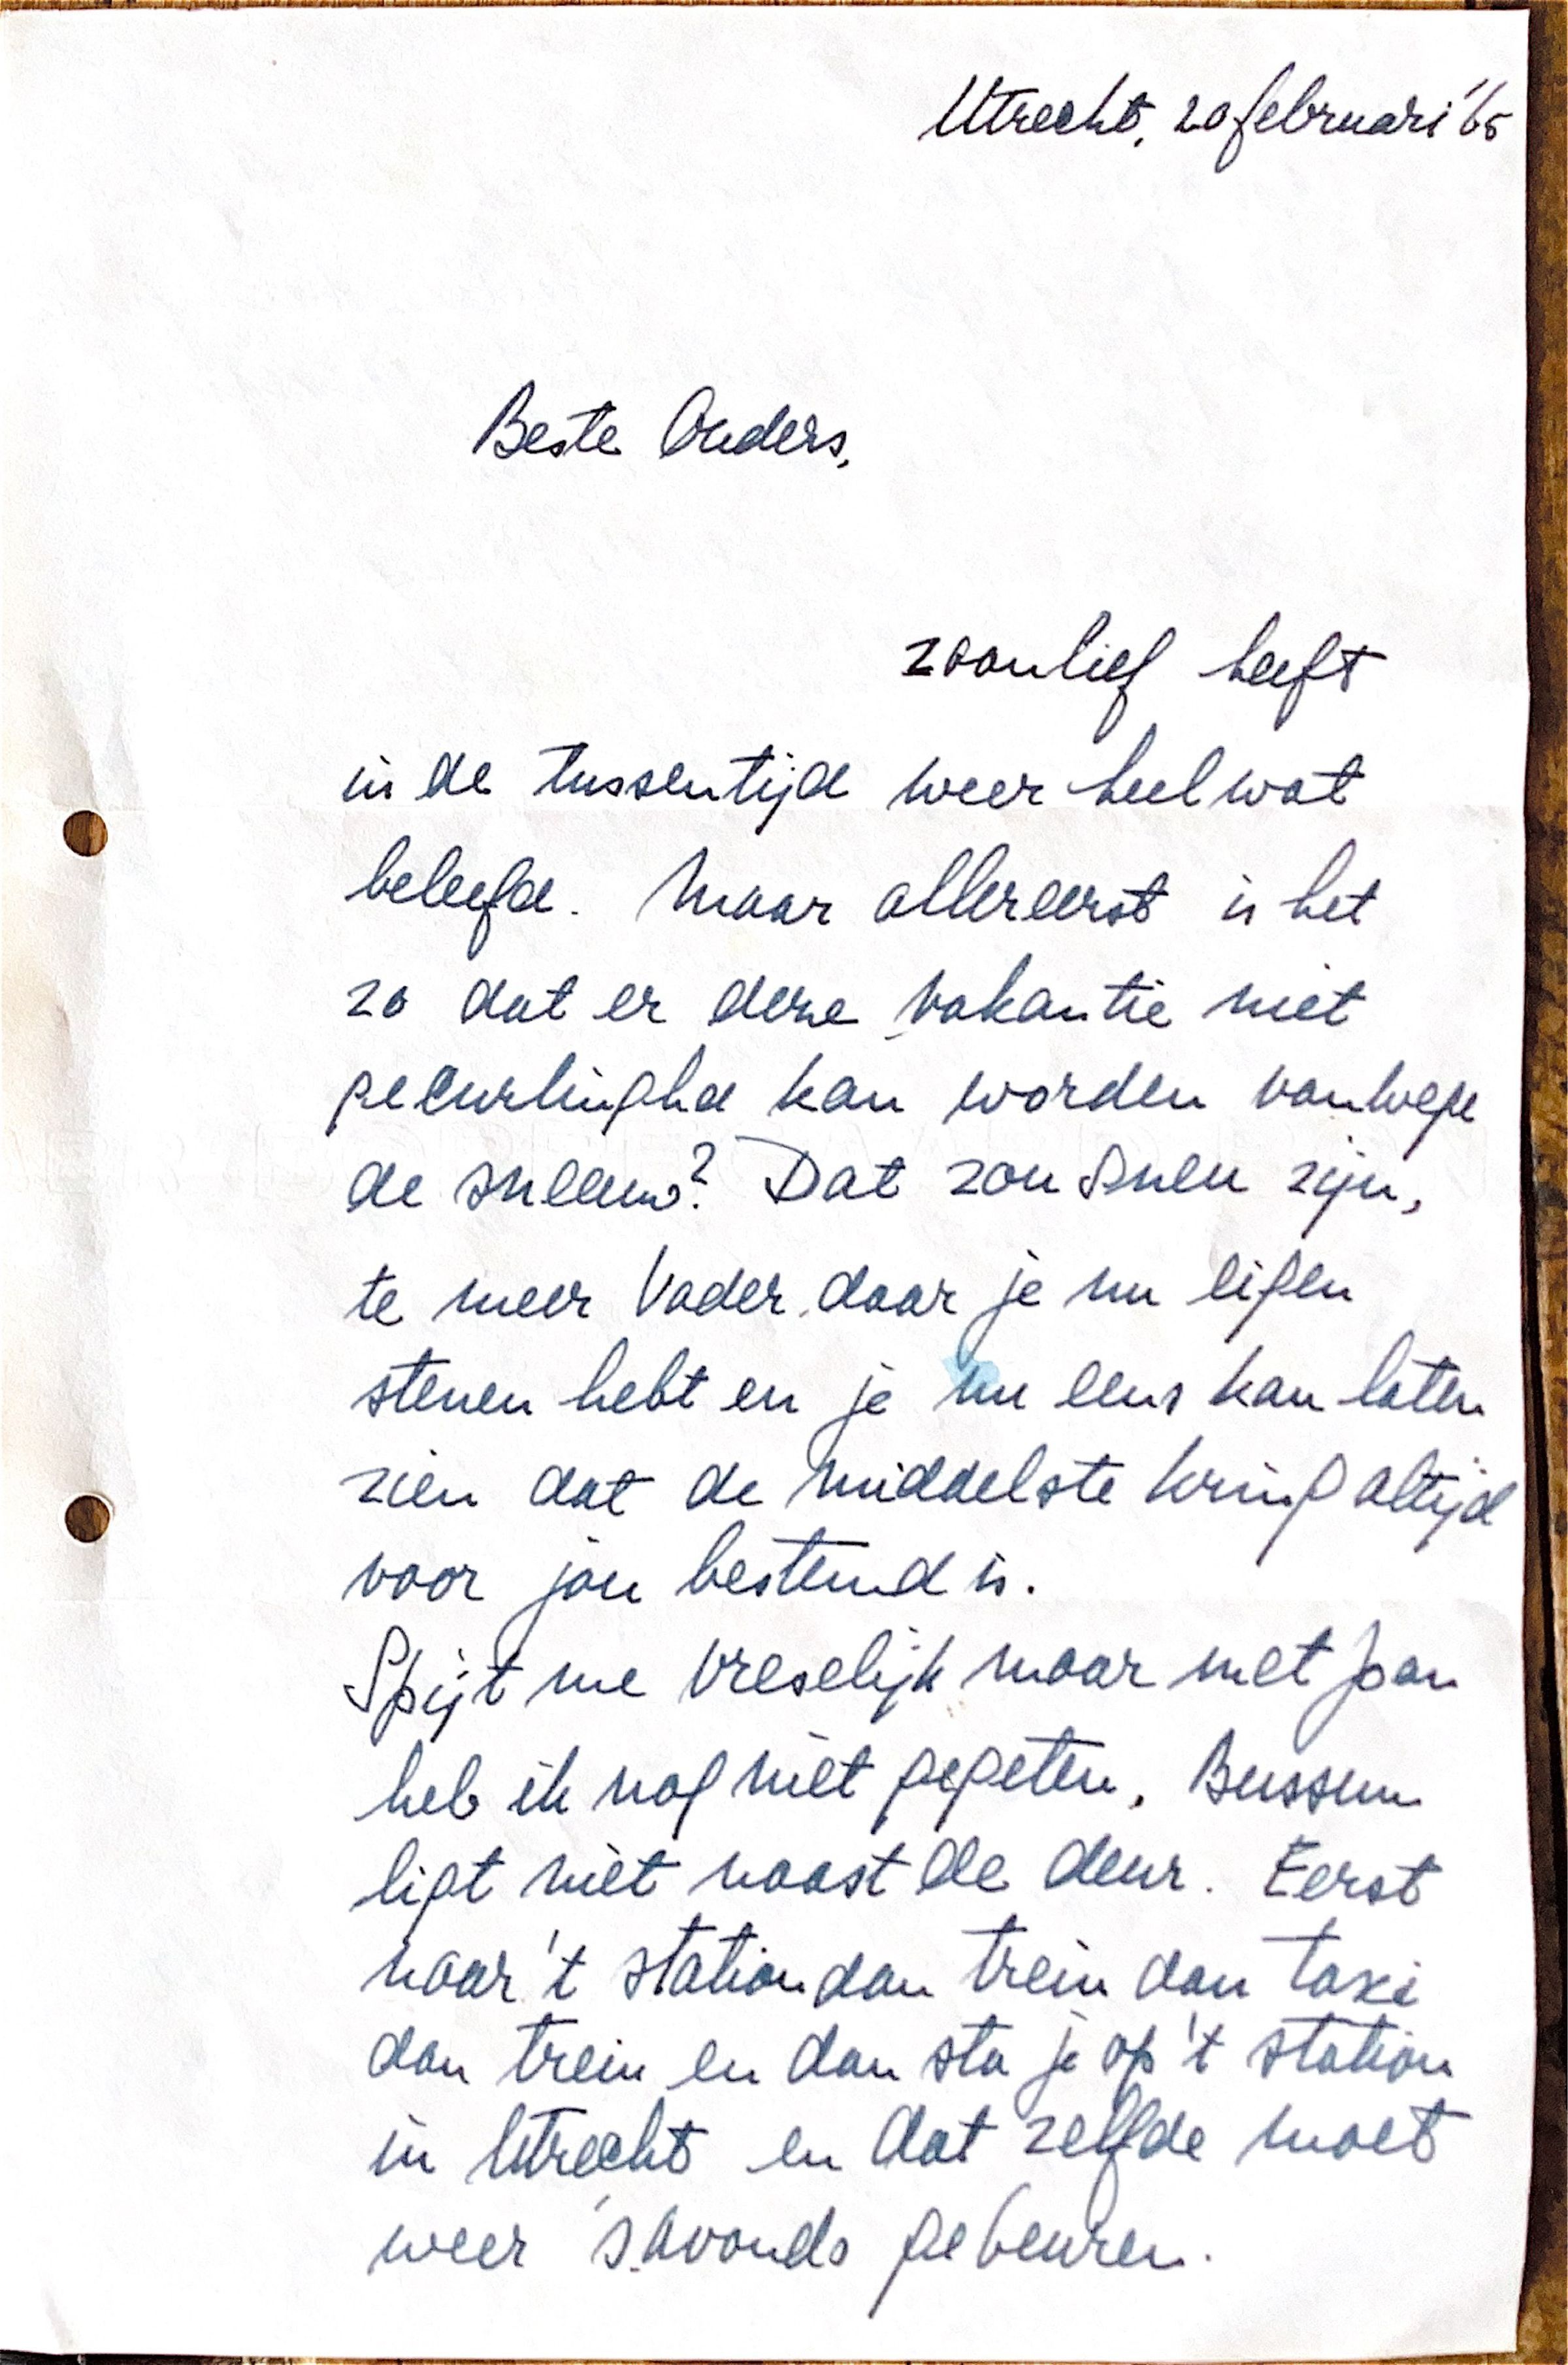 Utrecht, 20 februari '65
Beste Ouders,
zoonlief heeft
in de tussentijd weer heel wat
beleefd. Maar allereerst is het
zo dat er deze vakantie niet
gecurlinghd kan worden vanwege
de sneeuw? Dat zou sneu zijn,
te meer Vader daar je nu eigen
stenen hebt en je nu eens kan laten
zien dat de middelste kring altijd
voor jou bestemd is.
Spijt me vreselijk maar met Jan
heb ik nog niet gegeten, Bussum
ligt niet naast de deur. Eerst
naar 't station dan trein dan taxi
dan trein en dan sta je op 't station
in Utrecht en dat zelfde moet
weer 's avonds gebeuren.